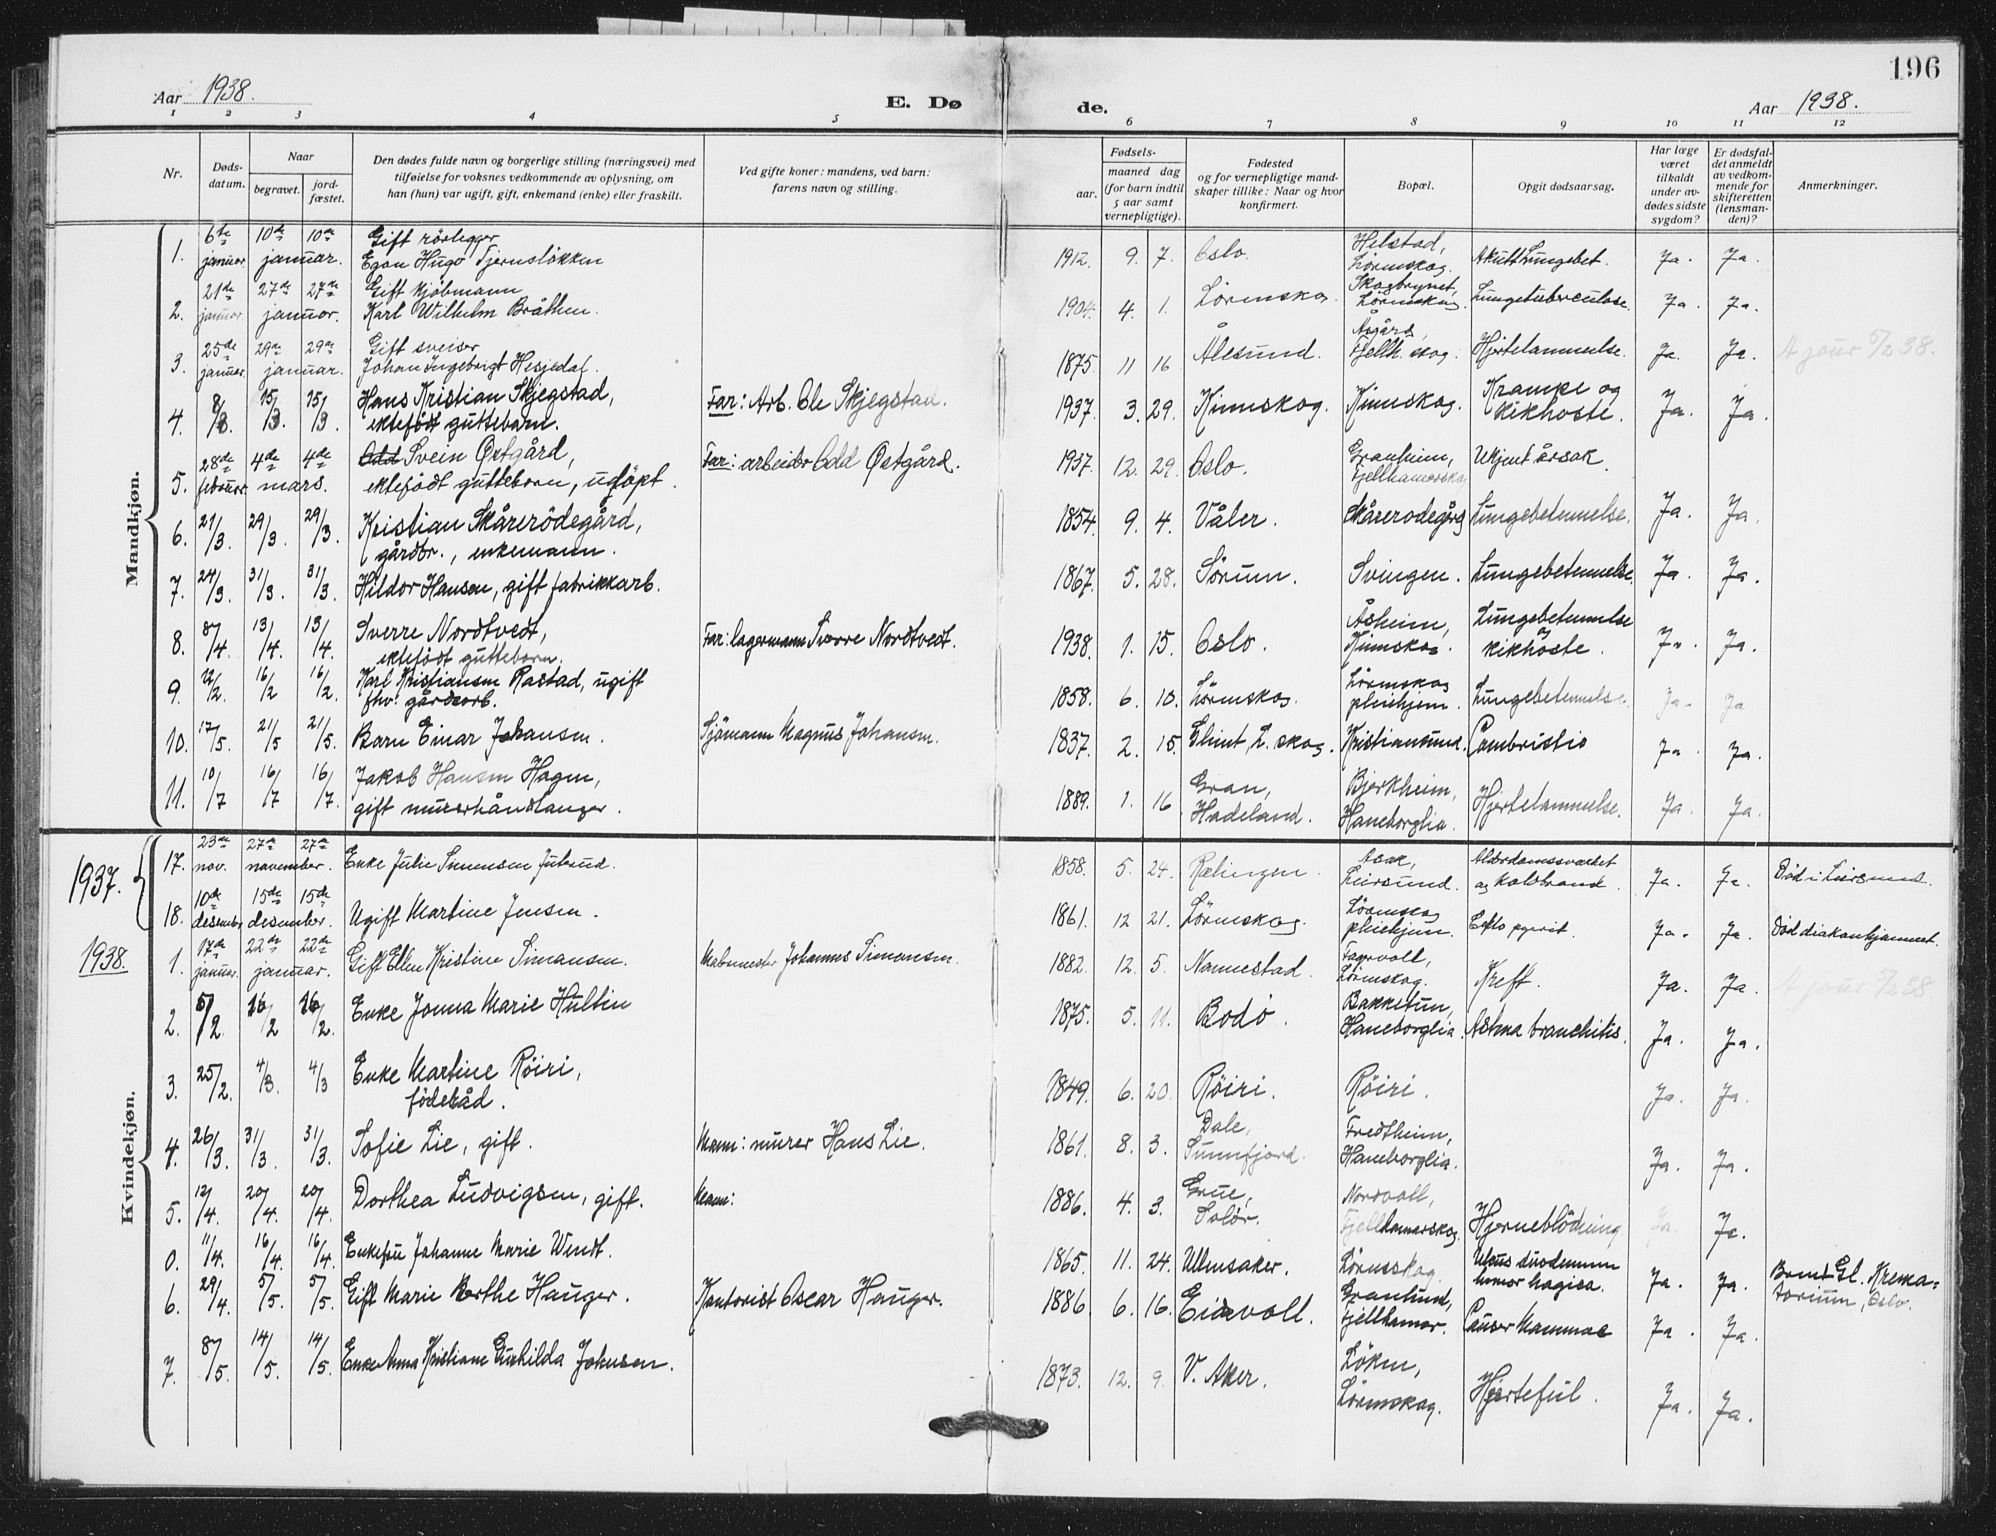 196
Aar 1938.
E. Dø de.
Aar 1938.
1 2 3 4 5 6 7 8 9 10 11 12
Nr.
Døds-
datum.
Naar
begravet.
jord-
fæstet.
Den dødes fulde navn og borgerlige stilling (næringsvei) med
tilføielse for voksnes vedkommende av oplysning, om
han (hun) var ugift, gift, enkemand (enke) eller fraskilt.
Ved gifte koner: mandens, ved barn:
farens navn og stilling.
Fødsels-
aar.
maaned dag
(for barn indtil
5 aar samt
vernepligtige).
Fødested
og for vernepligtige mand-
skaper tillike: Naar og hvor
konfirmert.
Bopæl.
Opgit dødsaarsag.
Har læge
været
tilkaldt
under av-
dødes sidste
sygdom?
Er dødsfal-
det anmeldt
av vedkom-
mende for
skifteretten
(lensman-
den)?
Anmerkninger.
Mandkjøn.
1. 6te januar 10de 10de januar. Gift rörlegger Egon Hugo Tjernsløkken 1912. 9. 7. Oslo. Helstad, Lörenskog. Akutt Lungebet. Ja. Ja.
2. 21de januar 27de 27de januar. Gift kjöbmann Karl Wilhelm Bråthen. 1904. 4. 1. Lörenskog Skogbrynet, Lörenskog Lungetuberculose. Ja. Ja.
3. 25de januar. 29de 29de januar. Gift sveiser Johan Ingebrigt Hesjedal. 1875. 11 16 Ålesund. Åsgård, Fjellh. skog. Hjertelammelse. Ja. Ja. A jour 5/2 38.
4. 8/3. 15/3. 15/3. Hans Kristian Skjegstad, ektefödt guttebarn. Far: Arb. Ole Skjegstad. 1937. 3. 29. Kinnskog. Kinnskog. Krampe og kikhoste. Ja. Ja.
5. 28de februar 4de 4de mars. Svein Østgård, ektefödt guttebarn, udöpt. Far: arbeider Odd Østgård. 1937. 12. 29. Oslo. Granheim, Fjellhamarskog Ukjent årsak.
6. 21/3. 29/3. 29/3. Kristian Skårerödegård, gårdbr., enkemann. 1854. 9. 4. Våler. Skårerodegård Lungebetennelse. Ja. Ja.
7. 24/3. 31/3. 31/3. Hildor Hansen, gift fabrikkarb. 1867. 5. 28. Sörum. Svingen. Lungebetennelse. Ja. Ja.
8. 8/4. 13/4. 13/4. Sverre Nordtvedt, ektefödt guttebarn. Far: lagermann Sverre Nordtvedt. 1938. 1. 15. Oslo. Åsheim, Kinnskog. Lungebetennelse kikhoste. Ja. Ja.
9. 12/2. 16/2 16/2. Karl Kristiansen Rastad, ugift fhv. gårdsarb. 1858. 6. 10. Lörenskog. Lörenskog pleiehjem. Lungebetennelse. Ja. Ja
10. 17/5. 21/5 21/5. Barn Einar Johansen. Sjömann Magnus Johansen. 1837. 2. 15. L. skog. Kristiansund. Combristio Ja. Ja.
11. 10/7 16/7 16/7. Jakob Hansen Hagen, gift murerhåndlanger. 1889. 1. 16 Gran, Hadeland. Bjerkheim, Haneborglia. Hjertelammelse. Ja. Ja.
1937.
17. 23de nov. 27de 27de november. Enke Julie Simensen Juterud. 1858. 5. 24. Rælingen. Asak, Leirsund. Alderdomssvakhet og koldbrand. Ja. Ja. Död i Leirsund.
18. 10de desember 15de 15de desember. Ugift Martine Jensen. 1861. 12 21. Lörenskog. Lörenskog pleiehjem. Ja. Ja. Död diakonhjemmet.
1938.
Kvindekjøn.
1. 17de januar. 22de 22de januar. Gift Ellen Kristine Simensen. Johannes Simensen. 1882. 12. 5. Nannestad. Fagervoll, Lörenskog. Kreft. Ja. Ja. A jour 5/2 38.
2. 5/2 16/2 16/2. Enke Jonna Marie Hultin 1875. 5. 11. Bodö. Bakketun, Haneborglia. Astma bronchitis. Ja. Ja.
3. 25/2. 4/3. 4/3 Enke Martine Röiri, föderåd. 1849. 6. 20. Röiri. Röiri. Ja. Ja.
4. 26/3. 31/3. 31/3. Sofie Lie, gift. Mann: murer Hans Lie. 1861. 8. 3. Dale, Sunnfjord. Fredheim, Haneborglia. Ja. Ja.
5. 12/4. 20/4. 20/4. Dorthea Ludvigsen, gift. Mann: 1886. 4. 3. Grue, Solör. Nordvoll, Fjellhamarskog Hjerneblödning Ja. Ja.
0. 11/4. 16/4. 16/4. Enkefru Johanne Marie Wendt. 1865. 11. 24. Ullensaker. Lörenskog Ulcus duodenum Ja. Ja. Brent Gl. Krema=torium, Oslo.
6. 29/4. 5/5. 5/5. Gift Marie Berthe Hauger. Kontorist Oscar Hauger. 1886 6. 16. Eidsvoll. Granlund, Fjellhamar. Cancer Mammae Ja. Ja.
7. 8/5. 14/5. 14/5. Enke Anna Kristiane Gunhilda Johnsen. 1873. 12. 9. V. Aker. Löken, Lörenskog. Hjertefeil. Ja. Ja.